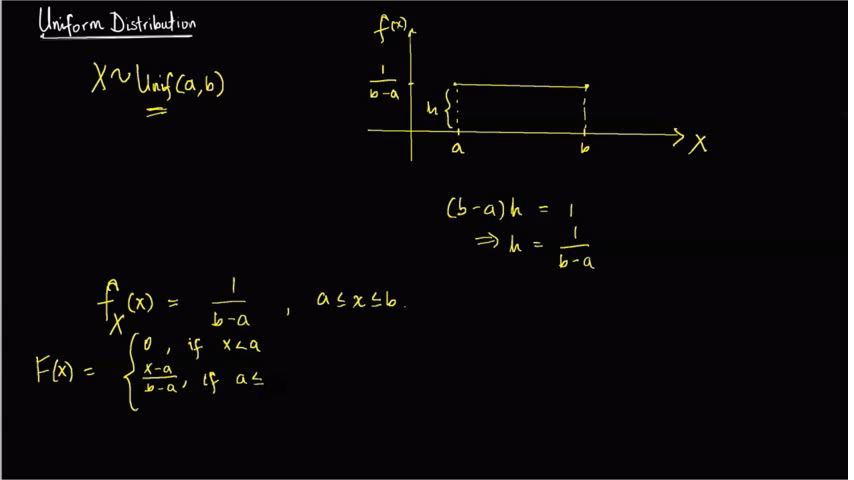 Uniform Distribution
X ~ Unif(a,b)
f(x)
1/(b-a)
h
a
b
X
(b-a)h = 1
⇒ h = 1/(b-a)
f_X(x) = 1/(b-a) , a ≤ x ≤ b.
F(x) = { 0 , if x<a
(x-a)/(b-a), if a ≤